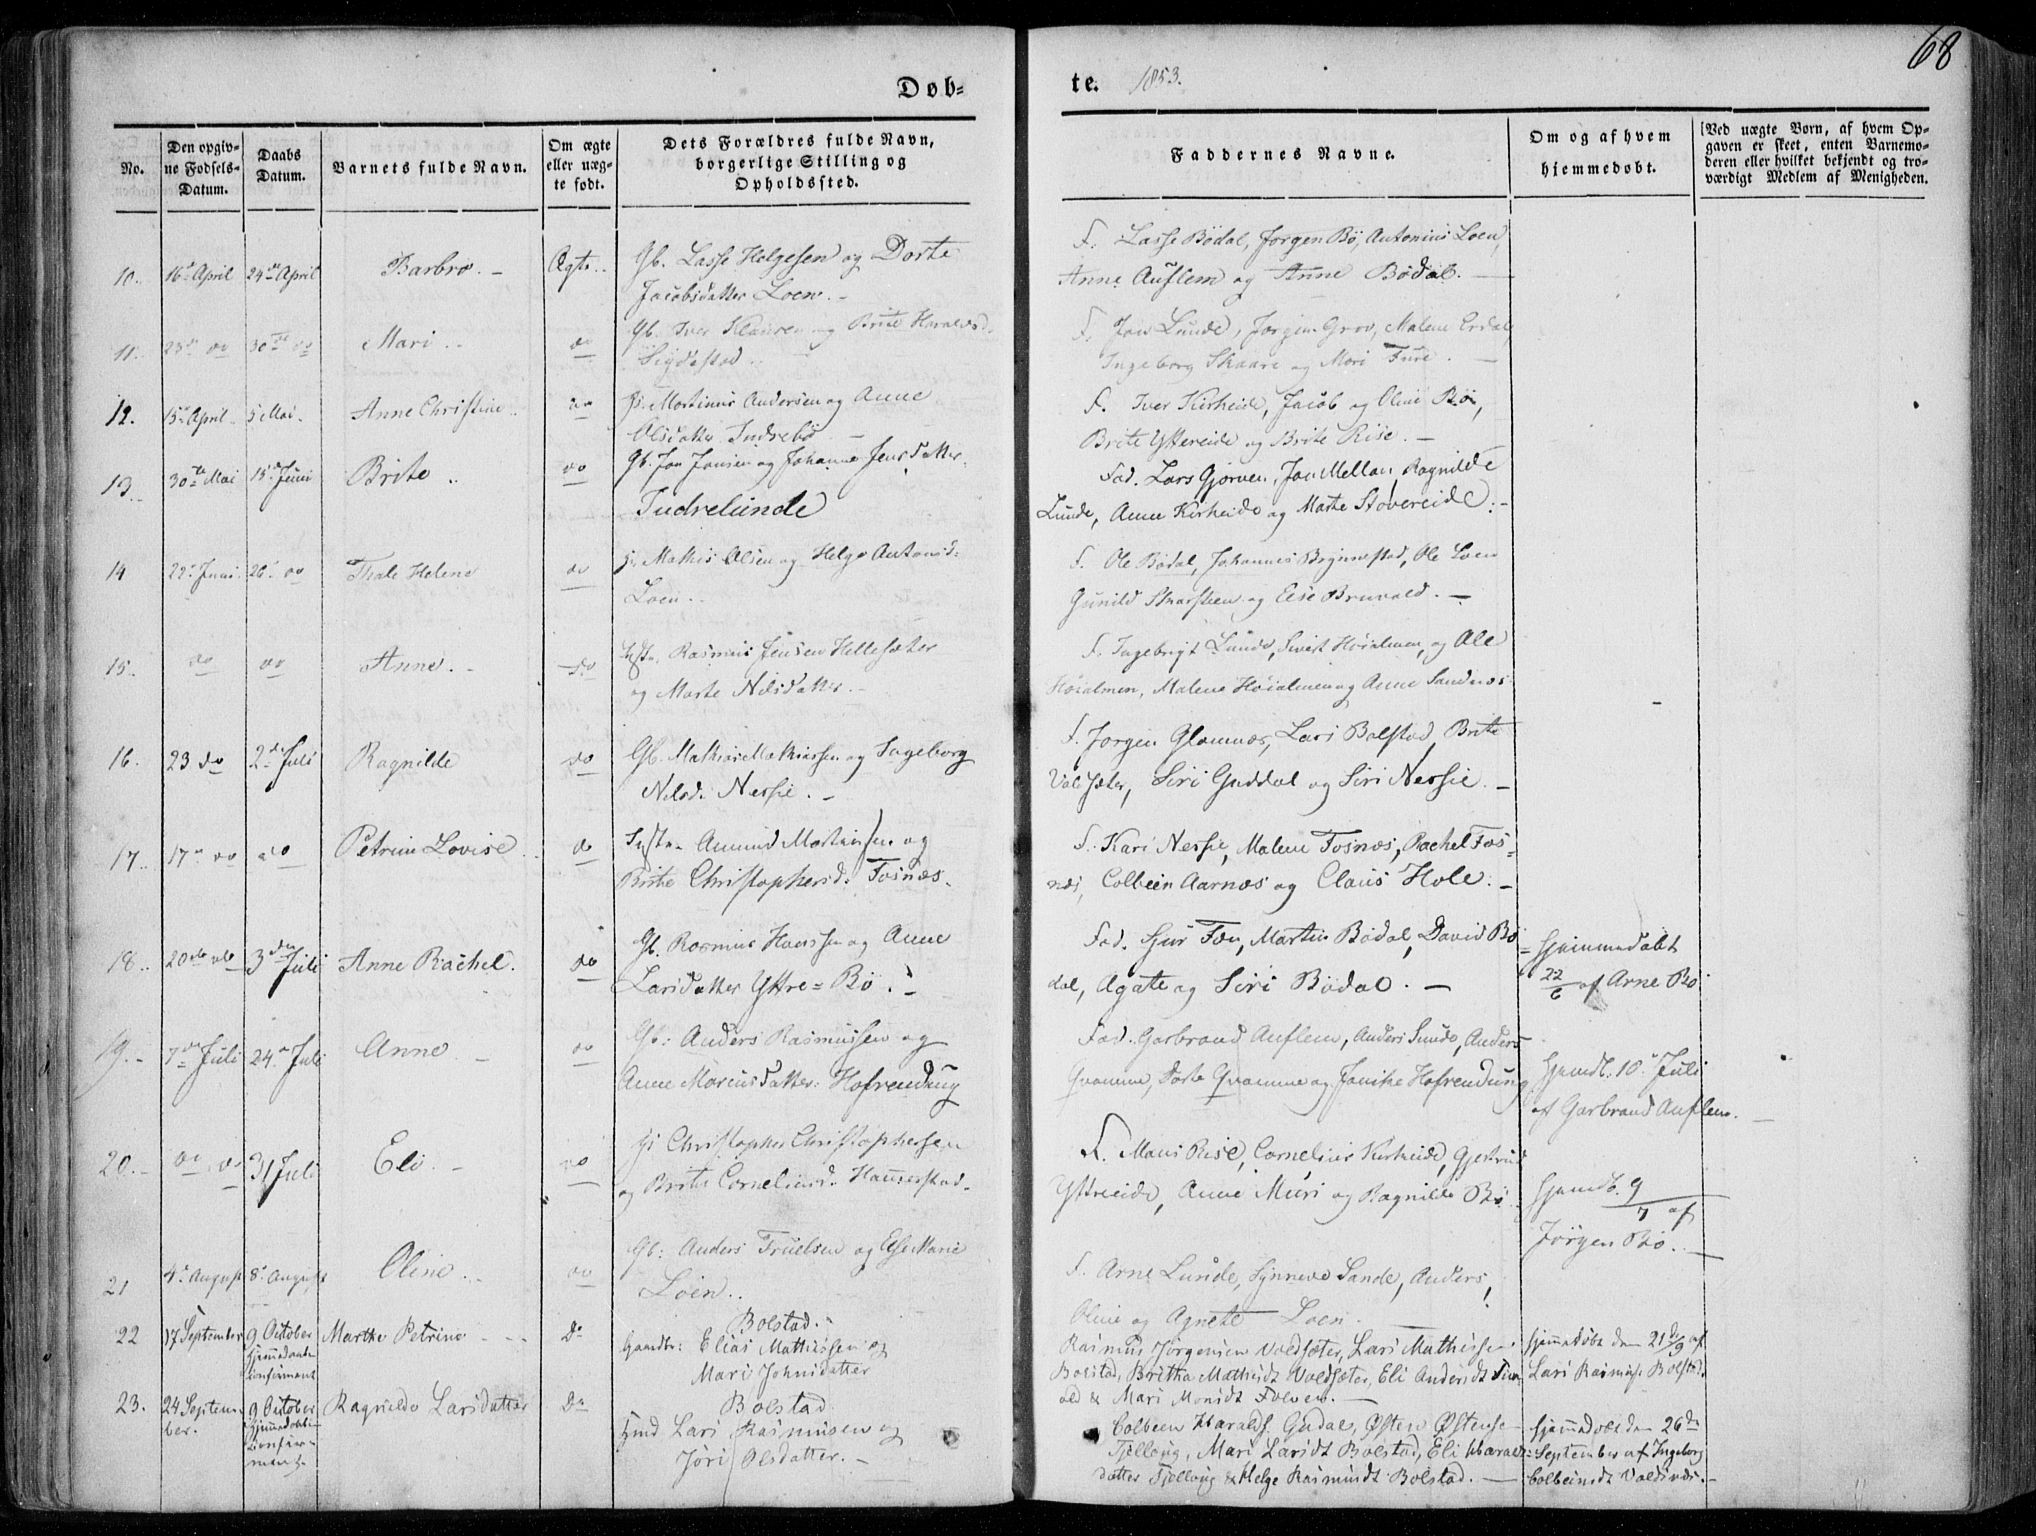 68
Døb-
te. 1853.
No.
Den opgiv-
ne Fødsels-
Datum.
Daabs
Datum.
Barnets fulde Navn.
Om ægte
eller uæg-
te født.
Dets Forældres fulde Navn,
borgerlige Stilling og
Opholdssted.
Faddernes Navne.
Om og af hvem
hjemmedøbt.
Ved uægte Børn, af hvem Op-
gaven er skeet, enten Barnemo-
deren eller hvilket bekjendt og tro-
værdigt Medlem af Menigheden.
10. 16de April 24de April Barbro. Ægte. Gb. Lasse Helgesen og Dorte
Jacobsdatter Loen.
F. Lasse Bødal, Jørgen Bø, Antonius Loen,
Anne Auflem og Anne Bødal.
11. 23de do 30te do Mari do Gb. Iver Klausen og Brite Haraldsd.
F. Jon Lunde, Jørgen Grov, Malene Erdal,
Ingeborg Skaare og Mari Fure.
12. 15de April 5 Mai Anne Christine do Martinus Andersen og Anne
Olsdatter Indrebø
F. Iver Kirheide, Jacob og Oline Bø,
Brite Yttereide og Brite Rise.
13. 30te Mai 15de Juni Brite do Gb. Jon Jonsen og Johanne Jensdatter
Indrelunde
Fad. Lars Gjørven, Jon Mellan, Ragnilde
Lunde, Anne Kirheide og Marte Støvereide.
14 22de Juni 26de do Thale Helene do Mathis Olsen og Helge Antonsd.
Loen.
F. Ole Bødal, Johannes Brynnestad, Ole Loen
Gunild Skarsteen og Else Bruvold.
15. do do Anne. do Rasmus Jensen Hellesæter
og Marte Nilsdatter.
F. Ingebrigt Lunde, Sivert Høialmen, og Ole
Høialmen, Malene Høialmen og Anne Sandnæs
16. 23 do 2de Juli Ragnilde do Gb. Mathias Mathiassen og Ingeborg
Nilsd. Nessie.
F. Jørgen Glomnæs, Lars Bolstad, Brite
Voldsæter, Siri Guddal og Siri Nessie.
17. 17de do do Petrine Lovise do Inste. Amund Martinsen og
Brite Christophersd. Fosnæs.
F. Kari Nessie, Malene Fosnæs, Rachel Fos-
næs, Colbein Aarnæs og Claus Hole.
18. 20de do 3den Juli Anne Rachel. do Gb. Rasmus Hanssen og Anne
Larsdatter Yttre-Bø.
Fad. Sjur Fæn, Martin Bødal, David Bø-
dal, Agate og Siri Bødal.
Hjemmedøbt
22/6 af Arne Bø
19. 7de Juli 24de Juli Anne do Gb: Anders Rasmussen og
Anne Mariusdatter: Hofrenduug
Fad. Garbrand Auflem, Anders Sunde, Anders
Qvamme, Dorte Qvamme og Janike Hofrenduug
Hjemdb. 10de Juli
af Garbrand Auflem.
20. do do 31 Juli Eli do Christopher Christophersen
og Brite Corneliusd. Haugestad.
F. Maus Rise, Cornelius Kirheide, Gjertrud
Yttreeide, Anne Muri og Ragnilde Bø
Hjemdb. 9/7 af
Jørgen Bø.
21 4de August 8de August Oline. do Gb: Anders Truelsen og Else Marie
Loen.
F. Arne Lunde, Synneve Sande, Anders,
Oline og Agnete Loen.
22 17 September 9 October Marthe Petrine Do Bolstad.
Gaardbr: Elias Mathiesen og
Mari Johnsdatter
Hjemmedaab
confirmeret
Rasmus Jørgensen Voldsæter, Lars Mathisse-
Bolstad, Britha Mathisdt Voldsæter, Eli Andersdt
Mari Monsdt Folven.
hjemmedøbt den 21de/9 af
Lars Rasmuss Bolstad.
23. 24 Septem-
ber. 9 October Ragnilde Larsdatter Do Bolstad
Hmd Lars Rasmusen og
Jøri Olsdatter.
Hjemmedaaben
confir-
meret.
Colbeen Haralds. Gudal, Østen Østense-
Tjelloug, Mari Larsdt Bolstad, Eli Haralds-
datter Tjelloug & Helge Rasmusdt Bolstad.
hjemmedøbt den 26de
September af Ingeborg
Colbeinsdt Voldsnæs.